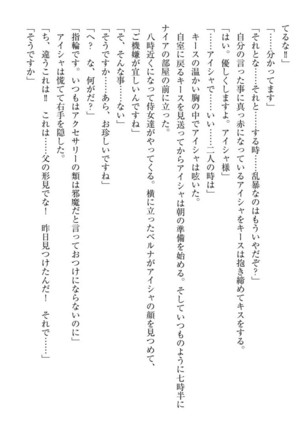 てるな‼」
「……分かってます」
「それとな……それと……する時……乱暴なのはもういやだぞ？」
自分の言った事に真っ赤になっているアイシャをキースは抱き締めてキスをする。
「はい。優しくしますよ。アイシャ様」
「……アイシャでいい……二人の時は」
キースの温かい胸の中でアイシャは呟いた。
自室に戻るキースを見送ってからアイシャは朝の準備を始める。そしていつものように七時半に
ナイアの部屋の前に立った。
八時近くになって侍女達がやってくる。横に立ったベルナがアイシャの顔を見つめて、
「ご機嫌が宜しいんですね」
「そ、そんな事……ない」
「そうですか……あら、お珍しいですね」
「へ？　な、何がだ？」
「指輪です。いつもはアクセサリーの類は邪魔だと言っておつけにならないのに」
アイシャは慌てて右手を隠した。
「ち、違うこれは‼　これは……父の形見でな！　昨日見つけたんだ！　それで……」
「そうですか」